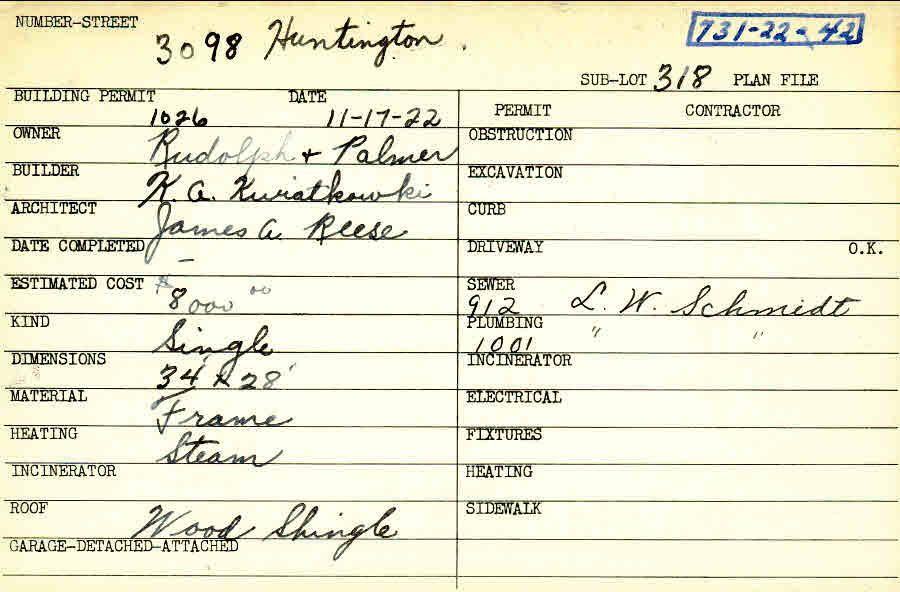 NUMBER-STREET
3098 Huntington.
731-22-42
SUB-LOT 318 PLAN FILE
BUILDING PERMIT DATE
1026 11-17-22
PERMIT CONTRACTOR
OWNER
Rudolph + Palmer
OBSTRUCTION
BUILDER
K. A. Kwiatkowki
EXCAVATION
ARCHITECT
James A. Reese
CURB
DATE COMPLETED
—
DRIVEWAY O.K.
ESTIMATED COST
$8000 00
SEWER
912 L. W. Schmidt
KIND
Single
PLUMBING
1001 " "
DIMENSIONS
34' x 28'
INCINERATOR
MATERIAL
Frame
ELECTRICAL
HEATING
Steam
FIXTURES
INCINERATOR
HEATING
ROOF
Wood Shingle
SIDEWALK
GARAGE-DETACHED-ATTACHED